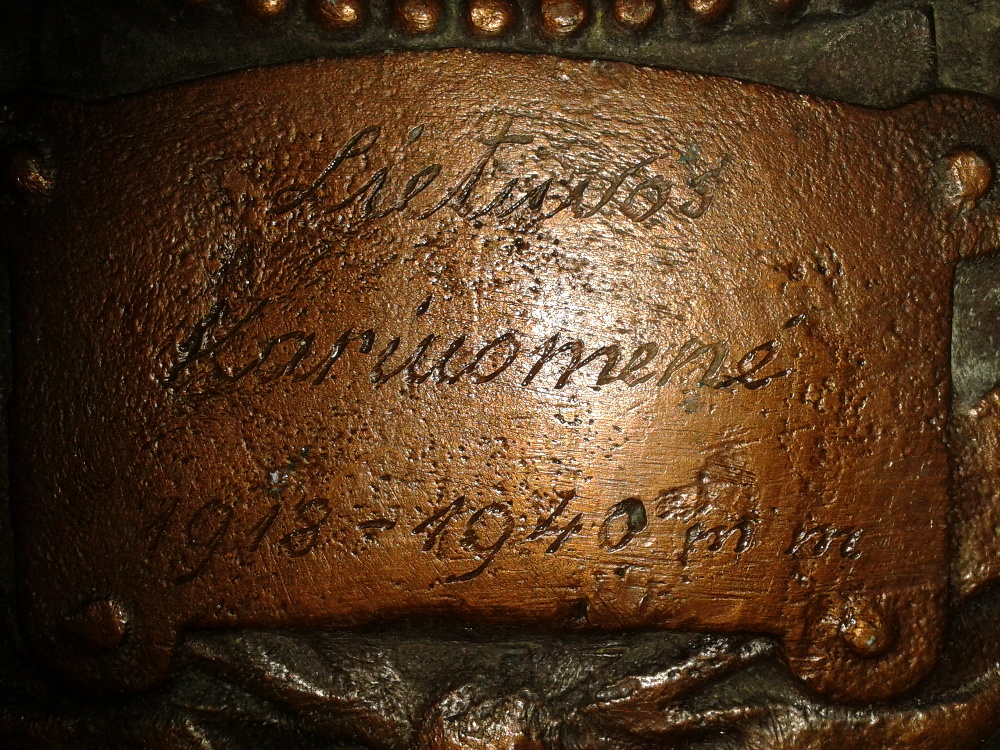 Lietuvos
Kariuomenė
1918-1940 m m